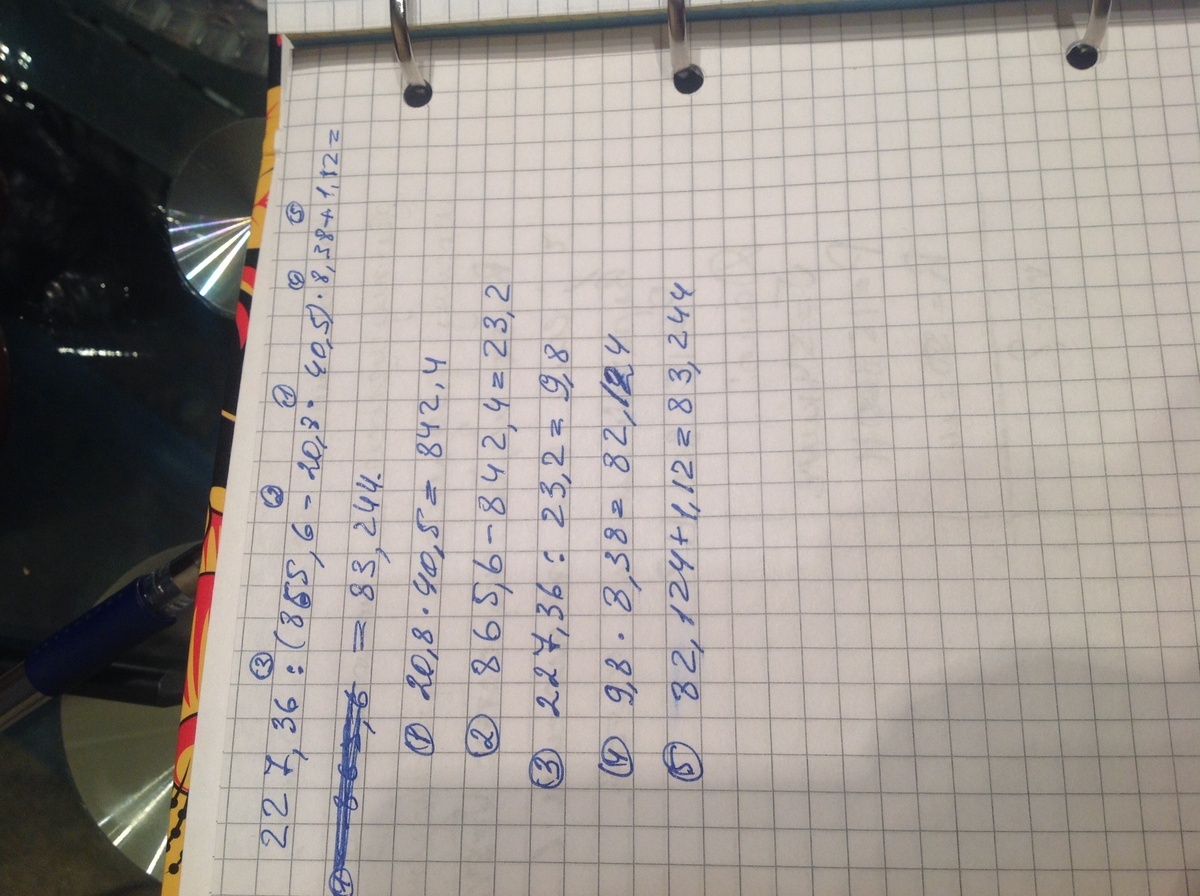 227,36 : (865,6 - 20,8 · 40,5) · 8,38 + 1,12 =
= 83,244.
① 20,8 · 40,5 = 842,4
② 865,6 - 842,4 = 23,2
③ 227,36 : 23,2 = 9,8
④ 9,8 · 8,38 = 82,124
⑤ 82,124 + 1,12 = 83,244